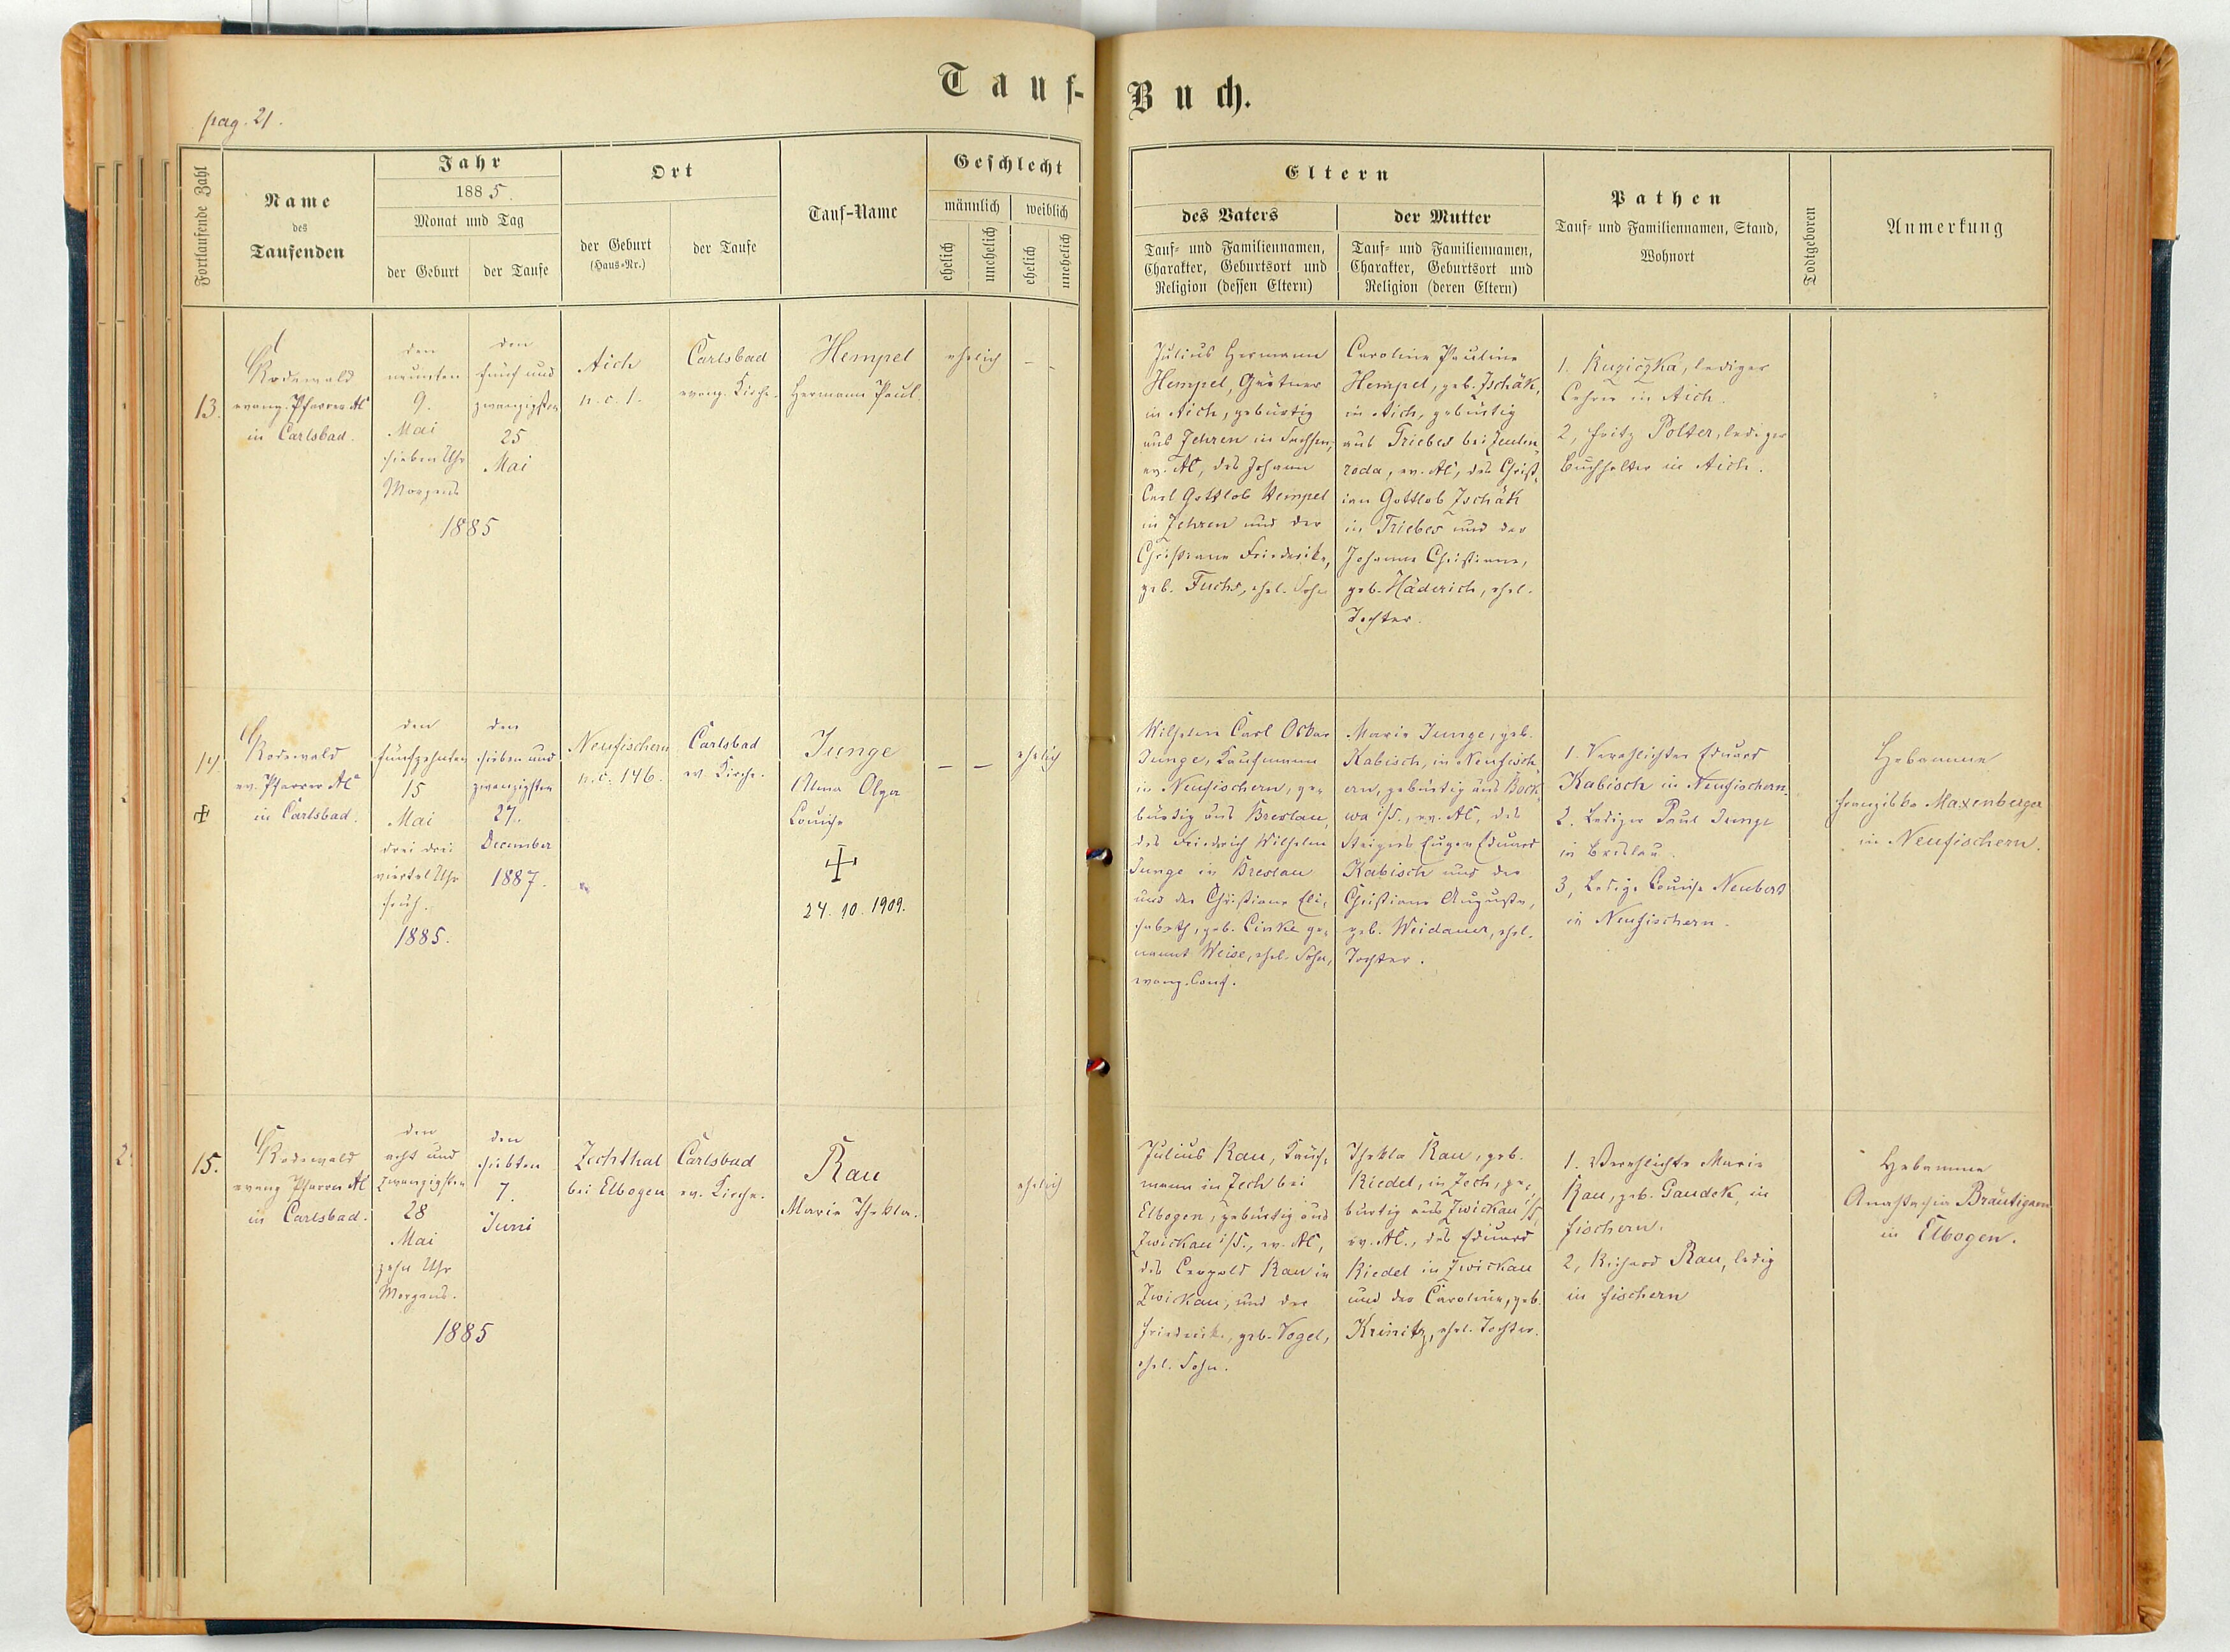 Tauf-Buch.
pag. 21.
Fortlaufende Zahl
Name
des
Taufenden
Jahr
1885.
Monat und Tag
der Geburt
der Taufe
Ort
der Geburt
(Haus-Nr.)
der Taufe
Tauf-Name
Geschlecht
männlich
weiblich
ehelich
unehelich
ehelich
unehelich
Eltern
des Vaters
Tauf- und Familiennamen,
Charakter, Geburtsort und
Religion (dessen Eltern)
der Mutter
Tauf- und Familiennamen,
Charakter, Geburtsort und
Religion (deren Eltern)
Pathen
Tauf- und Familiennamen, Stand,
Wohnort
Todtgeboren
Anmerkung
13.
Rodewald
evang. Pfarrer AC
in Carlsbad.
den
neunten
9.
Mai
sieben Uhr
Morgens
den
fünf und
zwanzigsten
25
Mai
1885
Aich
n. c. 1.
Carlsbad
evang. Kirche.
Hempel
Hermann Paul.
ehelich
Julius Hermann
Hempel, Gärtner
in Aich, gebürtig
aus Zehren in Sachsen,
ev. AC, des Johann
Carl Gottlob Hempel
in Zehren und der
Christiane Friederike,
geb. Fuchs, ehel. Sohn
Caroline Pauline
Hempel, geb. Zschäk,
in Aich, gebürtig
aus Triebes bei Zeulen-
roda, ev. AC, des Christ-
ian Gottlob Zschäk
in Triebes und der
Johanne Christiane,
geb. Häderich, ehel.
Tochter.
1. Ruziczka, lediger
Lehrer in Aich.
2, Fritz Polter, lediger
Buchhalter in Aich.
14
Rodewald
ev. Pfarrer AC
in Carlsbad.
den
fünfzehnten
15
Mai
drei drei
viertel Uhr
früh.
1885.
den
sieben und
zwanzigsten
27.
December
1887.
Neufischern
n. c. 146.
Carlsbad
ev. Kirche.
Junge
Alma Olga
Louise
24. 10. 1909.
ehelich
Wilhelm Carl Oskar
Junge, Kaufmann
in Neufischern, ge-
bürtig aus Breslau,
des Friedrich Wilhelm
Junge in Breslau
und der Christiane Eli-
sabeth, geb. Cinke ge-
nannt Weise, ehel. Sohn,
evang. Conf.
Marie Junge, geb.
Kabisch, in Neufisch
ern, gebürtig aus Bock-
wa i/S., ev. AC, des
Steigers Eugen Eduard
Kabisch und der
Christiane Auguste,
geb. Weidauer, ehel.
Tochter.
1. Verehlichter Eduard
Kabisch in Neufischern.
2. Lediger Paul Junge
in Breslau.
3, Ledige Louise Neubert
in Neufischern.
Hebamme
Franziska Maxenberger
in Neufischern.
15.
Rodewald
evang Pfarrer AC
in Carlsbad.
den
acht und
zwanzigsten
28
Mai
zehn Uhr
Morgens.
den
siebten
7.
Juni
1885
Zechthal
bei Elbogen
Carlsbad
ev. Kirche.
Rau
Marie Thekla.
ehelich
Julius Rau, Kauf-
mann in Zech bei
Elbogen, gebürtig aus
Zwickau i/S., ev. AC,
des Leopold Rau in
Zwickau, und der
Friedericke, geb. Vogel,
ehel. Sohn.
Thekla Rau, geb.
Riedel, in Zech, ge-
bürtig aus Zwickau i/S
ev. AC., des Eduard
Riedel in Zwickau
und der Caroline, geb.
Krinitz, ehel. Tochter.
1. Verehlichte Marie
Rau, geb. Gaudek, in
Fischern.
2, Richard Rau, ledig
in Fischern
Hebamme
Anastasia Bräutigam
in Elbogen.